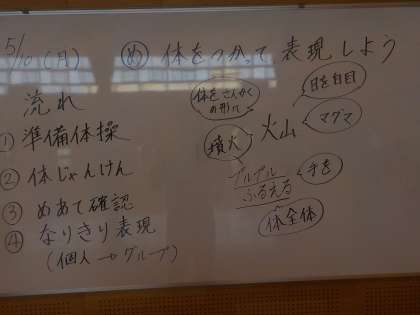 5/10(月)
め 体をつかって表現しよう
流れ
① 準備体操
② 体じゃんけん
③ めあて確認
④ なりきり表現
(個人→グループ)
体をさんかく
の形に
目を
マグマ
火山
噴火
プルプル
ふるえる
手を
体全体